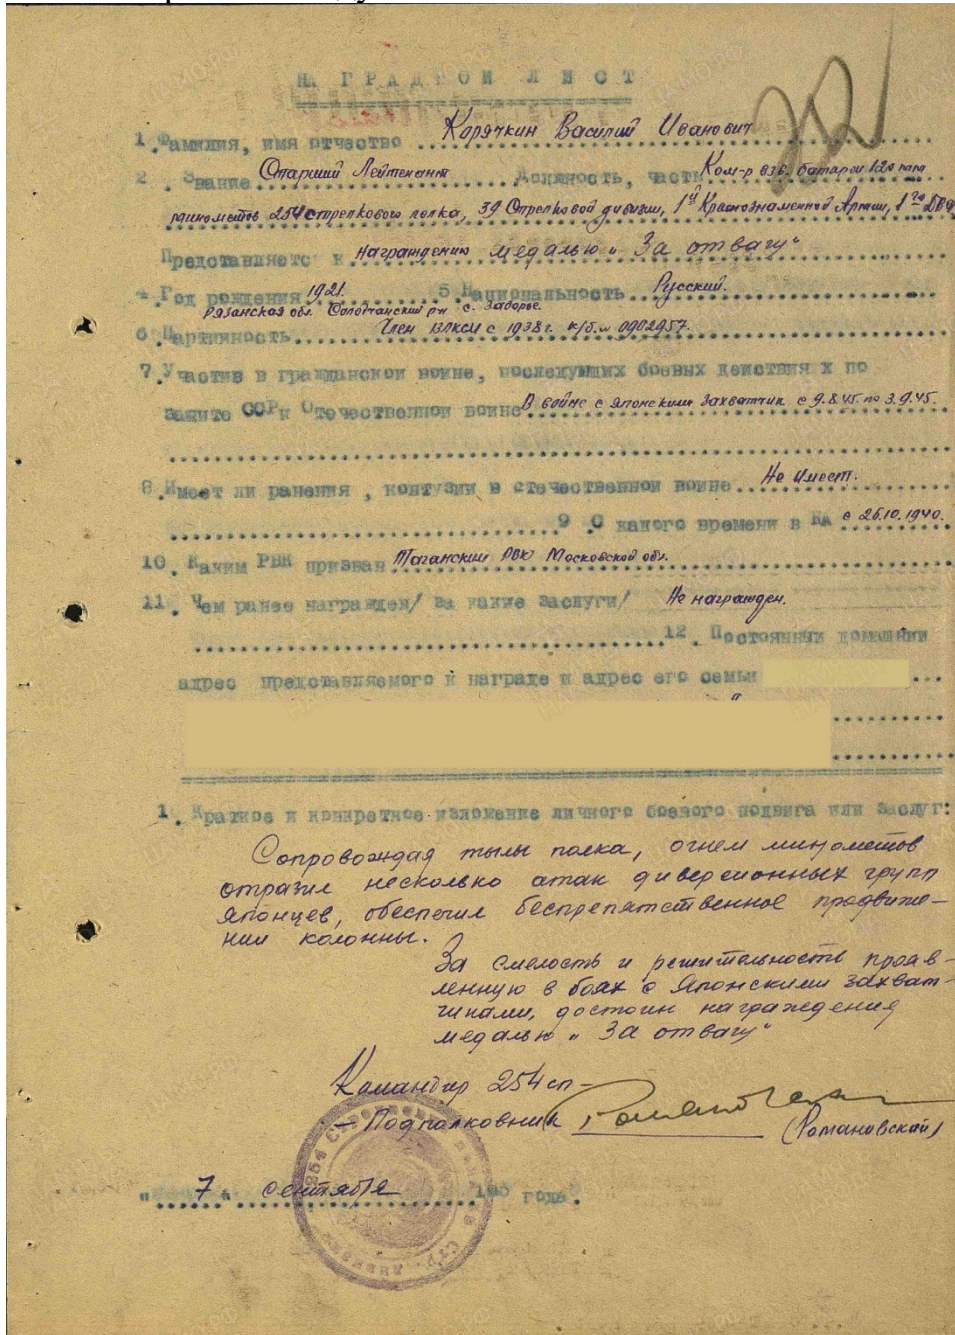 НАГРАДНОЙ ЛИСТ
1. Фамилия, имя отчество Карячкин Василий Иванович
2. Звание Старший Лейтенант Должность, часть Ком-р взв. батареи 120 мм
минометов 254 стрелкового полка, 39 Стрелковой дивизии, 1й Краснознаменной Армии, 1го ДВФ
Представляетс к награждению медалью „За отвагу“
4. Год рождения 1921. 5 Национальность Русский.
Рязанская обл. Солотчанский р-н с. Заборье.
6 Партийность Член ВЛКСМ с 1938 г. к/б. № 0902957.
7. Участив в гражданской воине, последующих боевых действия х по
защите СССР и Отечественной воине В войне с Японским захватчик. с 9.8.45. по 3.9.45.
8. Имеет ли ранения, контузии в отечественной воине Не имеет.
9 С какого времени в КА с 26.10.1940.
10. Каким РВК призван Таганским РВК Московской обл.
11. Чем ранее награжден/ за какие заслуги/ Не награжден.
12. Постоянный домашний
адрес представляемого к награде и адрес его семьи
1. Краткое и конкретное изложение личного боевого подвига или заслуг:
Сопровождая тылы полка, огнем минометов
отразил несколько атак диверсионных групп
Японцев, обеспечил беспрепятственное продвиже-
нии колонны.
За смелость и решительность прояв-
ленную в боях с Японскими захват-
чиками, достоин награждения
медалью „За отвагу“
Командир 254 сп -
- Подполковник (Романовский)
" 7 " сентября 194 года.